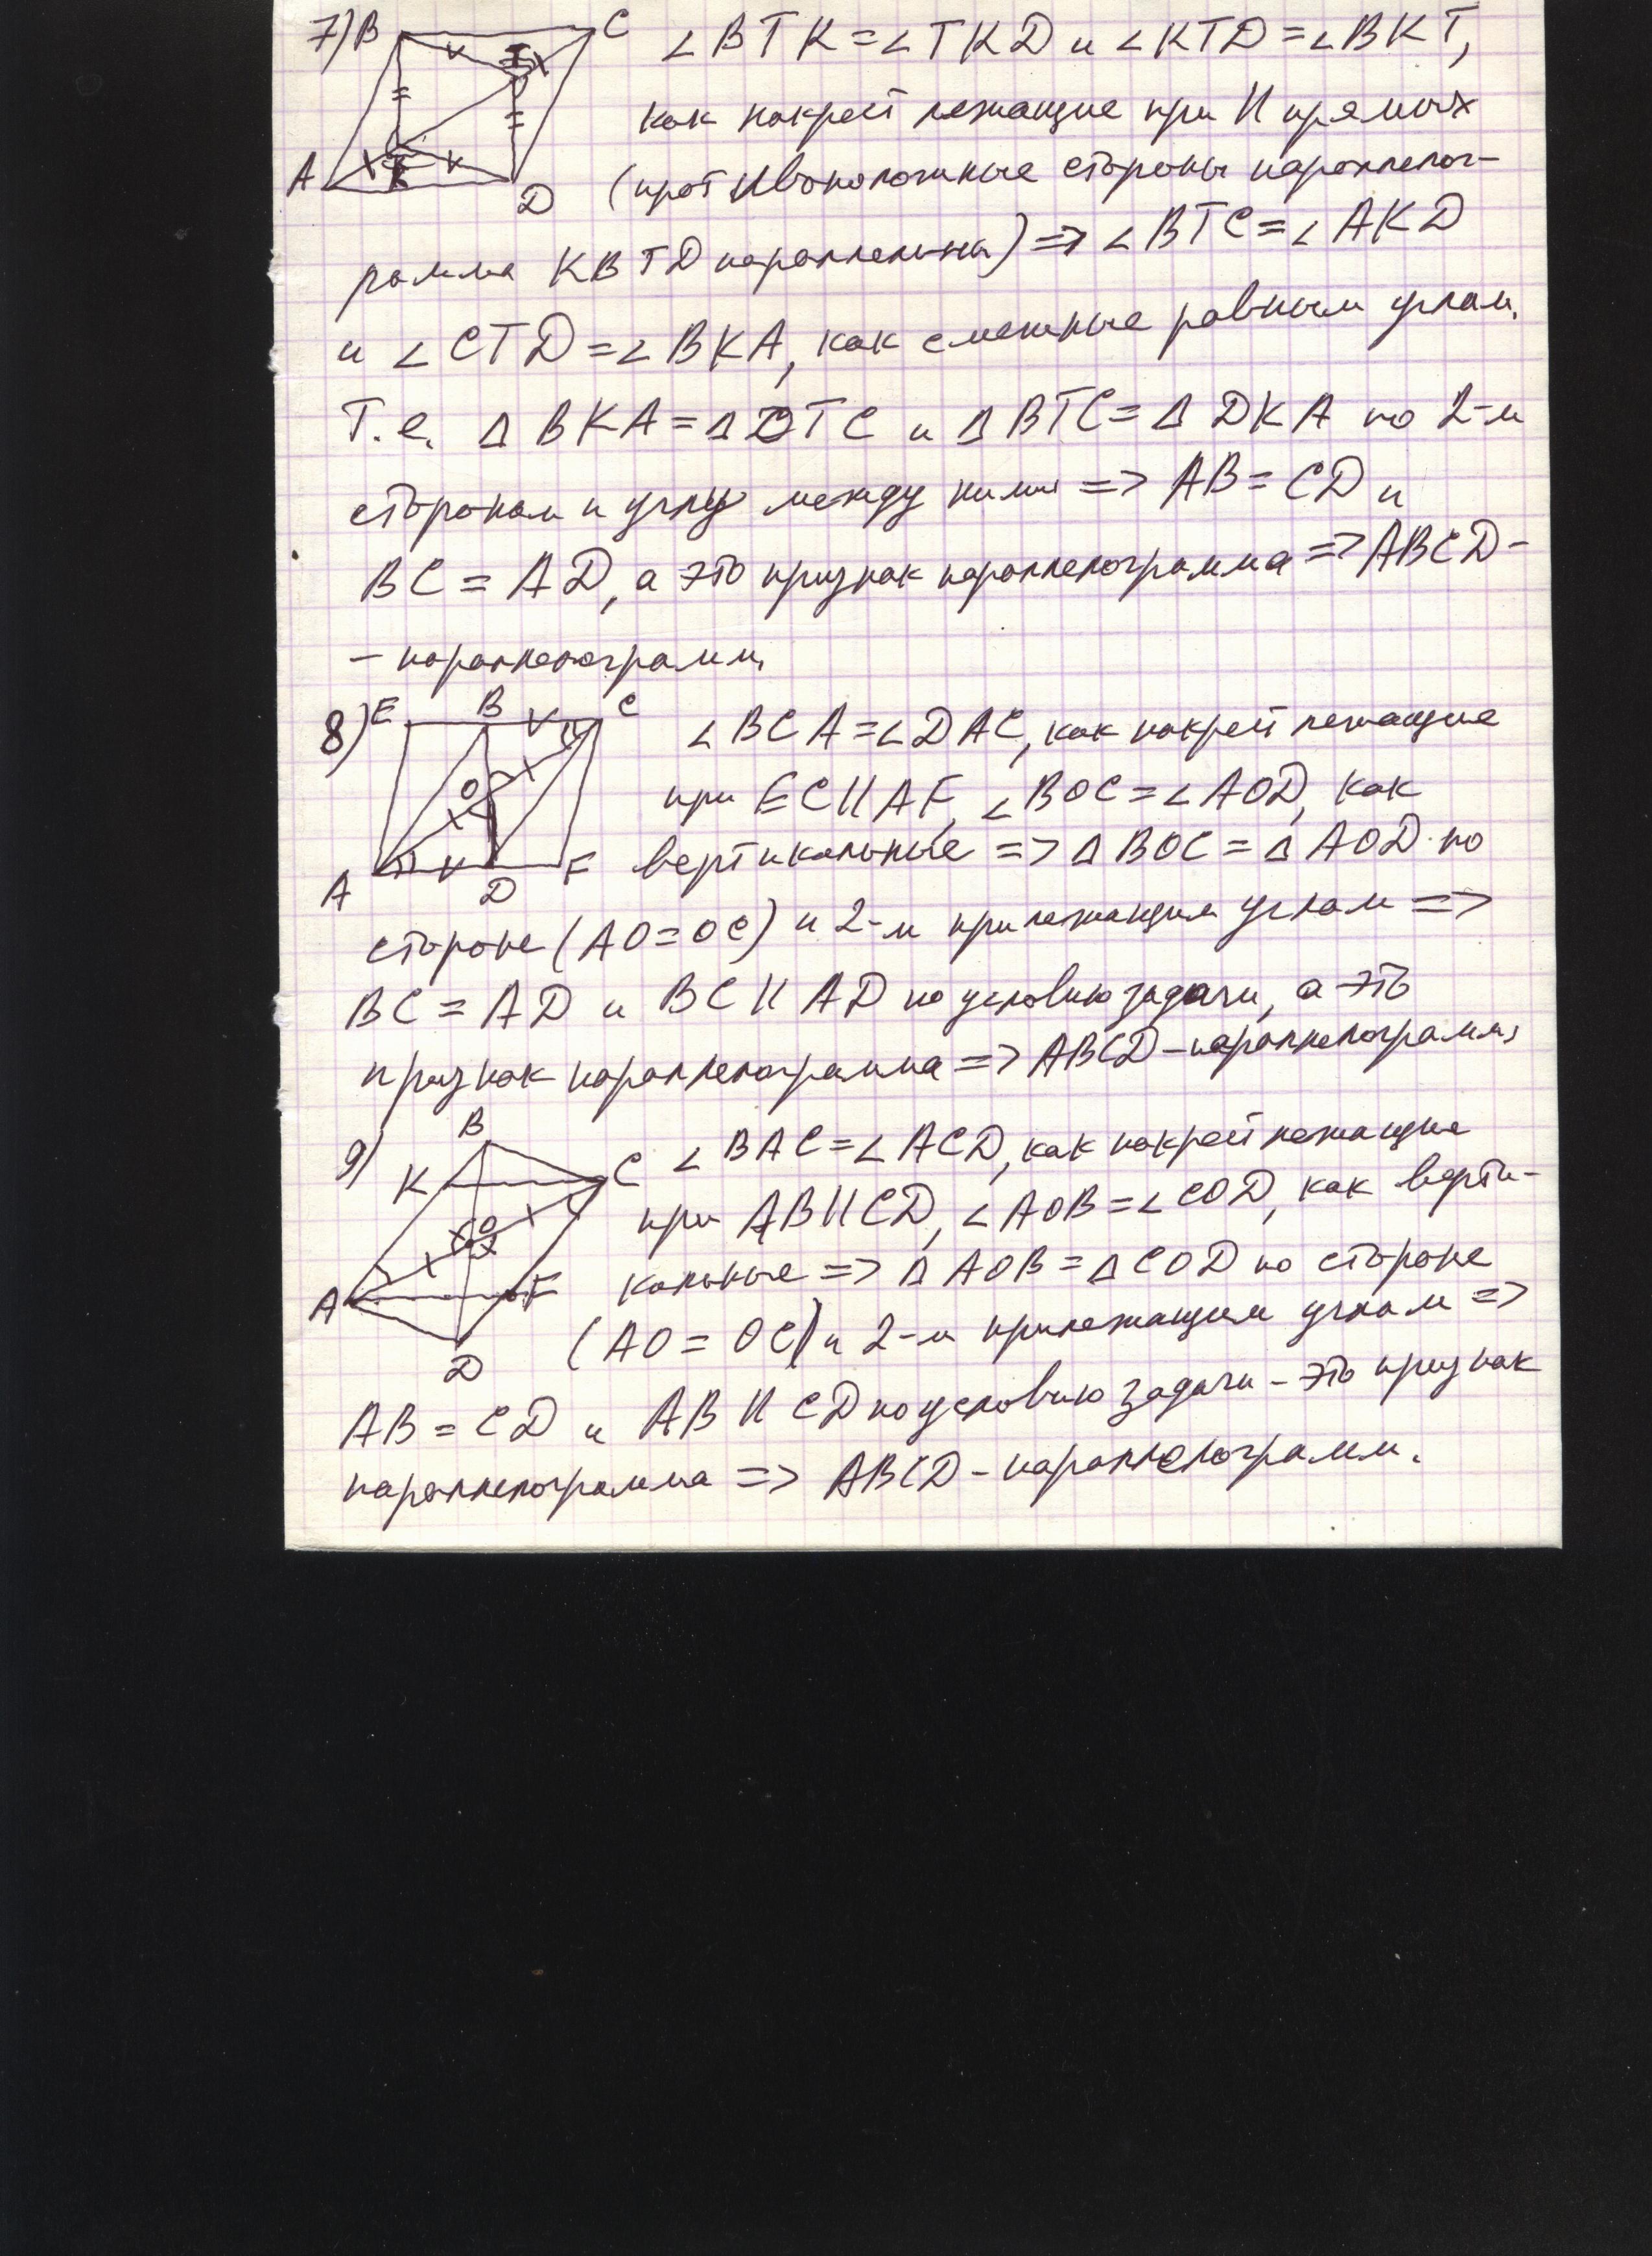 7) B C ∠BTK=∠TKD и ∠KTD=∠BKT,
T
как накрест лежащие при || прямых
A K D (противоположные стороны параллелог-
рамма KBTD параллельны) => ∠BTC=∠AKD
и ∠CTD=∠BKA, как смежные равным углам.
Т.е. Δ BKA=Δ DTC и Δ BTC=Δ DKA по 2-м
сторонам и углу между ними => AB=CD и
BC=AD, а это признак параллелограмма => ABCD-
- параллелограмм.
8) E B C ∠BCA=∠DAC, как накрест лежащие
O при EC||AF, ∠BOC=∠AOD, как
A D F вертикальные => Δ BOC=Δ AOD по
стороне (AO=OC) и 2-м прилежащим углам =>
BC=AD и BC||AD по условию задачи, а это
признак параллелограмма => ABCD-параллелограмм,
9) B K C ∠BAC=∠ACD, как накрест лежащие
O при AB||CD, ∠AOB=∠COD, как верти-
A F кальные => Δ AOB=Δ COD по стороне
D (AO=OC) и 2-м прилежащим углам =>
AB=CD и AB||CD по условию задачи - это признак
параллелограмма => ABCD-параллелограмм.